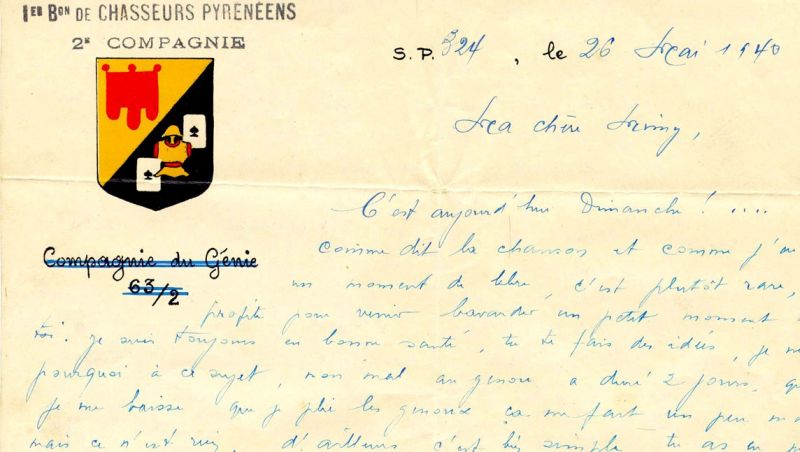 1ER BON DE CHASSEURS PYRENÉENS
2E COMPAGNIE
S. P. 324 , le 26 Mai 1940
Ma chère Mimy,
Compagnie du Génie
63/2
C'est aujourd'hui Dimanche ! ....
comme dit la chanson et comme j'ai
un moment de libre, c'est plutôt rare,
profite pour venir bavarder un petit moment
toi. je suis toujours en bonne santé, tu te fais des idées, je ne
pourquoi à ce sujet, mon mal au genou a duré 2 jours,
je me baisse que je plie les genoux ça me fait un peu
mais ce n'est rien, d'ailleurs c'est bien simple tu as